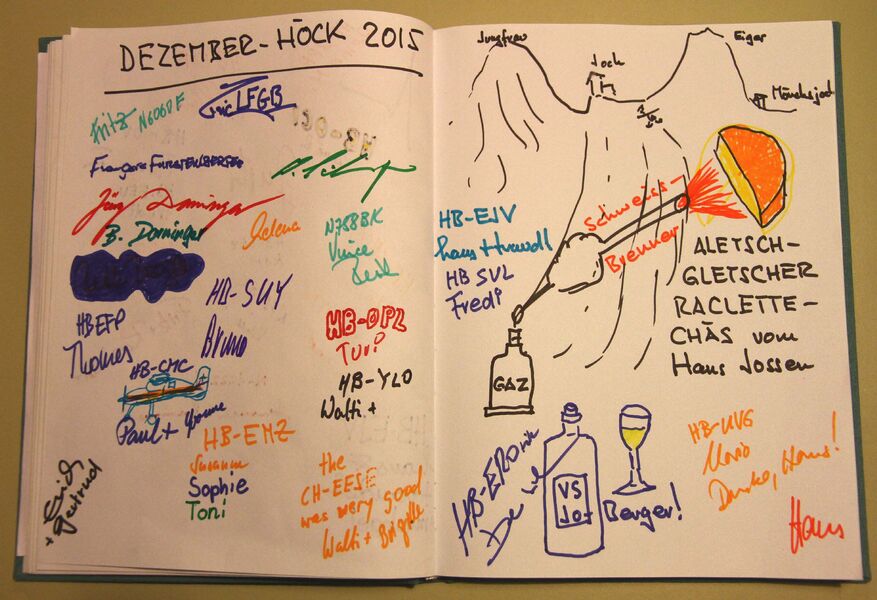 DEZEMBER-HÖCK 2015
Fritz N606DF
LFGB
Jürg Dominger
B. Dominger
Selena
N788BK
Vince
HB-SUY
Bruno
HBEFP
Thomas
HB-OPZ
Turi
HB-CMC
Paul + Yvonne
HB-YLO
Walti +
HB-EMZ
Susanne
Sophie
Toni
the
CH-EESE
was very good
Walti + Brigitte
+ Erich
Gertrud
Jungfrau
Joch
Eiger
Mönchsjoch
HB-EJV
HB SVL
Fredi
Schweiss-
Brenner
GAZ
ALETSCH-
GLETSCHER
RACLETTE-
CHÄS vom
Hans Jossen
HB-ERO
VS
Berger!
HB-UVG
Mario
Danke, Hans!
Hans